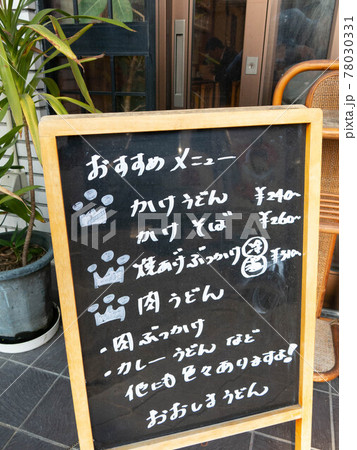 おすすめメニュー
かけうどん ¥240~
かけそば ¥260~
焼あげぶっかけ 冷 ¥310~
肉うどん
・肉ぶっかけ
・カレーうどん など
他にも色々ありますよ!
おおしまうどん
PIXTA
pixta.jp - 78030331